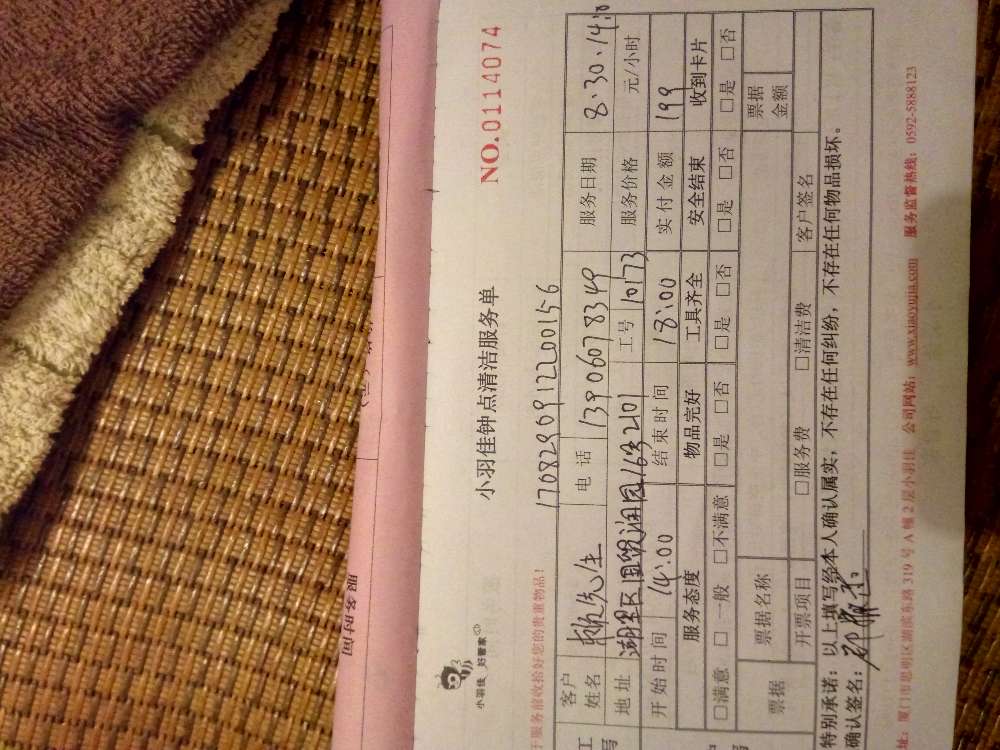 服务时间
小羽佳 好管家
小羽佳钟点清洁服务单
NO.0114074
于服务前收拾好您的贵重物品!
170829091220015-6
客户姓名
先生
电话
13906078349
服务日期
8.30.14:
地址
湖里区
16#2101
工号
10173
服务价格
元/小时
开始时间 14:00 结束时间 18:00 实付金额 199
服务态度 物品完好 工具齐全 安全结束 收到卡片
□满意 □一般 □不满意 □是 □否 □是 □否 □是 □否 □是 □否
票据
票据名称
票据金额
开票项目 □服务费 □清洁费 客户签名
特别承诺:以上填写经本人确认属实,不存在任何纠纷,不存在任何物品损坏。
确认签名:
址:厦门市思明区湖滨东路319号A幢2层小羽佳 公司网站:www.xiaoyujia.com 服务监督热线:0592-5888123